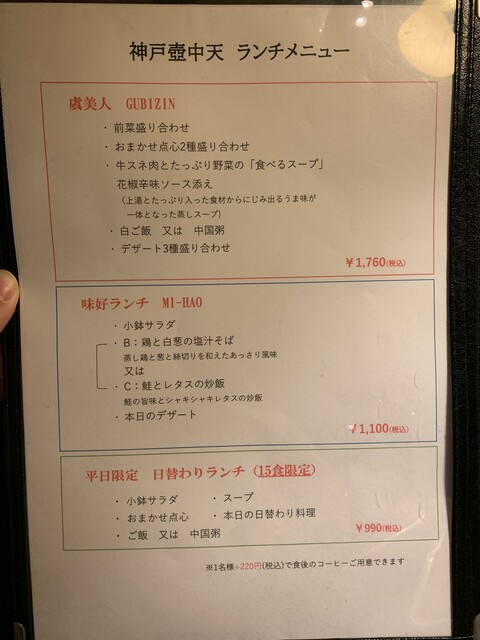 神戸壺中天 ランチメニュー
虞美人 GUBIZIN
・前菜盛り合わせ
・おまかせ点心2種盛り合わせ
・牛スネ肉とたっぷり野菜の「食べるスープ」
花椒辛味ソース添え
（上湯とたっぷり入った食材からにじみ出るうま味が
一体となった蒸しスープ）
・白ご飯 又は 中国粥
・デザート3種盛り合わせ
￥1,760(税込)
味好ランチ MI-HAO
・小鉢サラダ
・B：鶏と白葱の塩汁そば
蒸し鶏と葱と絲切りを和えたあっさり風味
又は
・C：鮭とレタスの炒飯
鮭の旨味とシャキシャキレタスの炒飯
・本日のデザート
￥1,100(税込)
平日限定 日替わりランチ（15食限定）
・小鉢サラダ ・スープ
・おまかせ点心 ・本日の日替わり料理
・ご飯 又は 中国粥
￥990(税込)
※1名様+220円(税込)で食後のコーヒーご用意できます